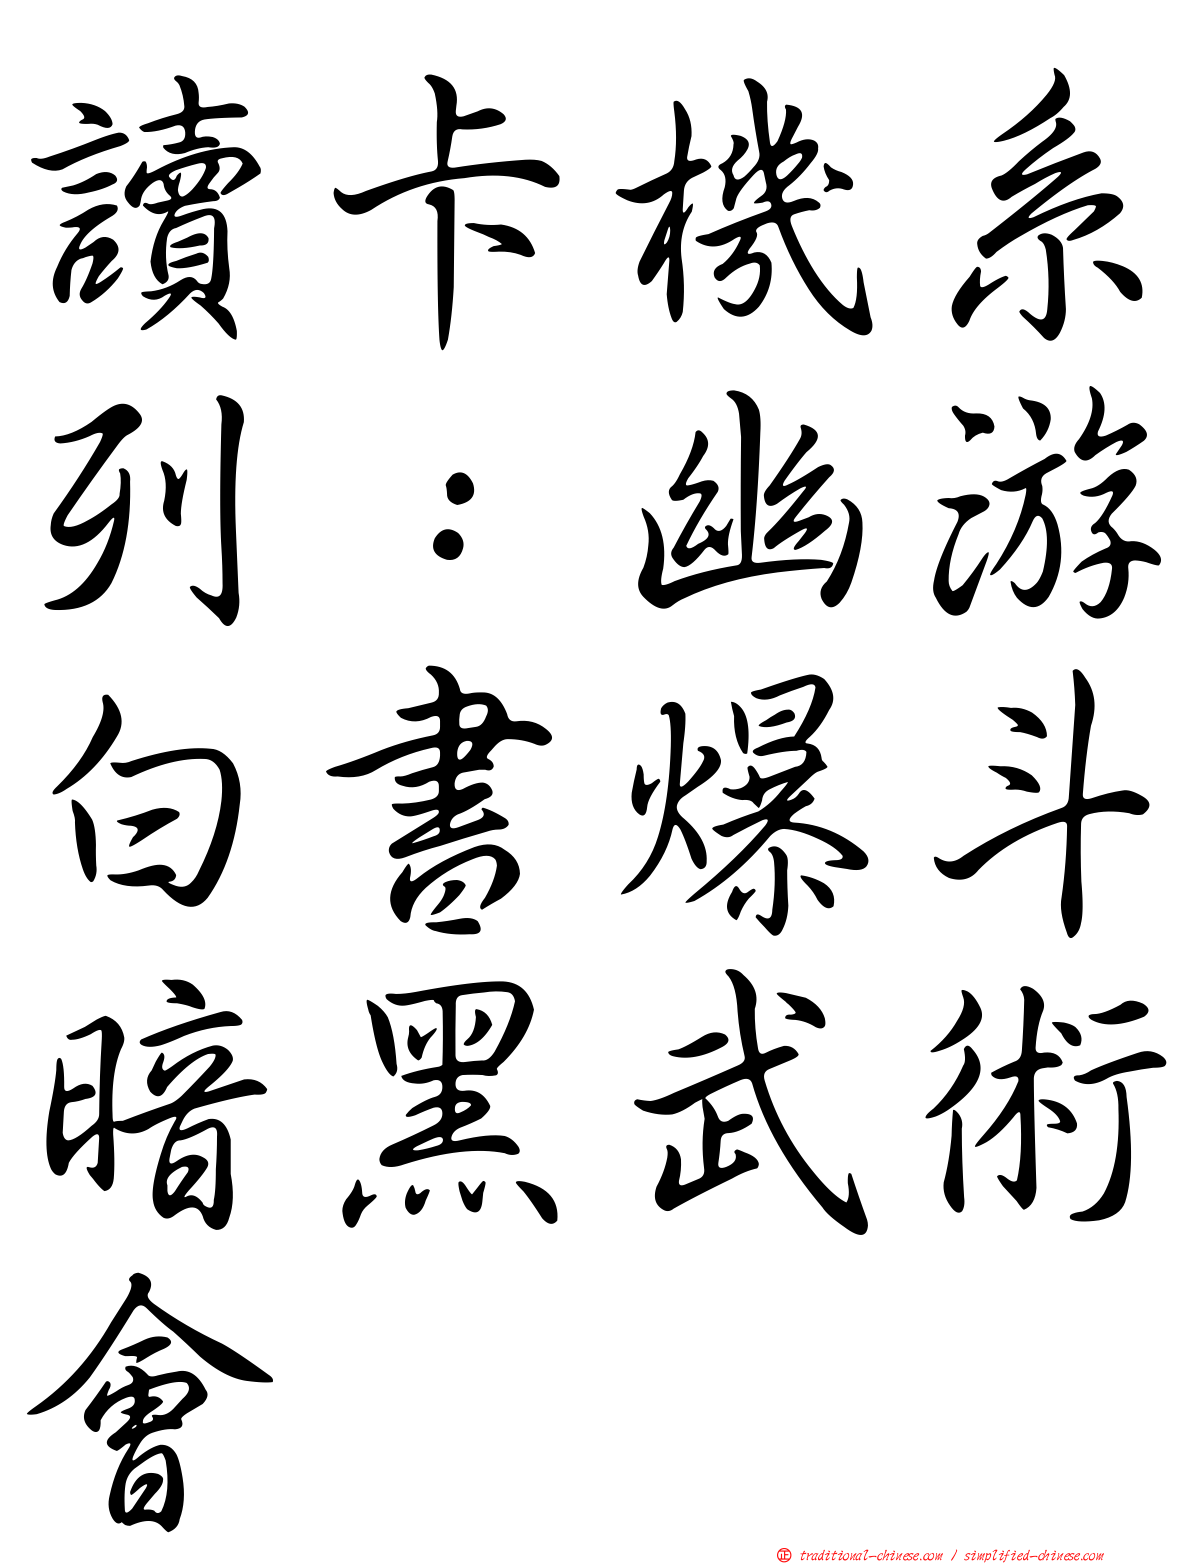 讀卡機系
列：幽游
白書爆斗
暗黑武術
會
正 traditional-chinese.com / simplified-chinese.com